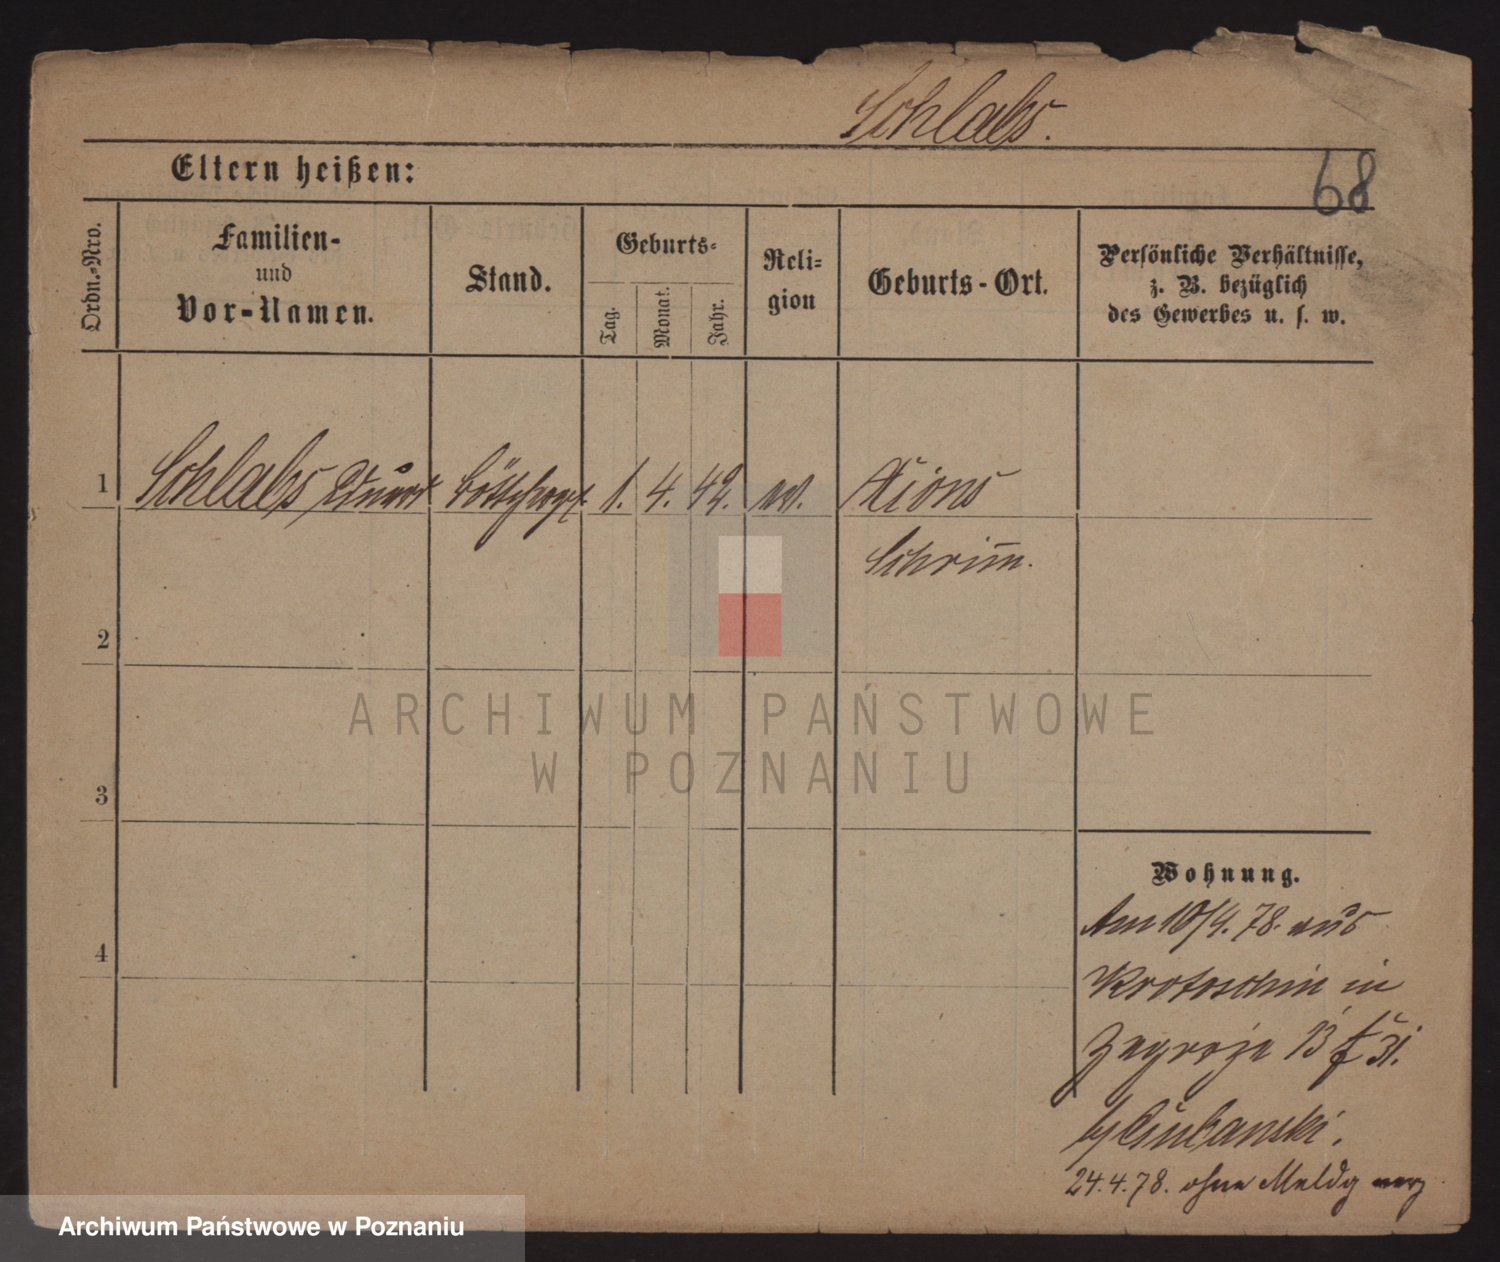 Schlabs.
Eltern heißen:
68
Ordn.-Nro.
Familien-
und
Vor-Namen.
Stand.
Geburts-
Tag.
Monat.
Jahr.
Reli-
gion
Geburts-Ort.
Persönliche Verhältnisse,
z. B. bezüglich
des Gewerbes u. s. w.
1 Schlabs Eduard 1. 4. 42. Xions
Schrim̅.
2
3
4
Wohnung.
Am 10/4. 78. aus
Krotoschin in
Zagroże 13
24. 4. 78. ohne Meldg
ARCHIWUM PAŃSTWOWE
W POZNANIU
Archiwum Państwowe w Poznaniu